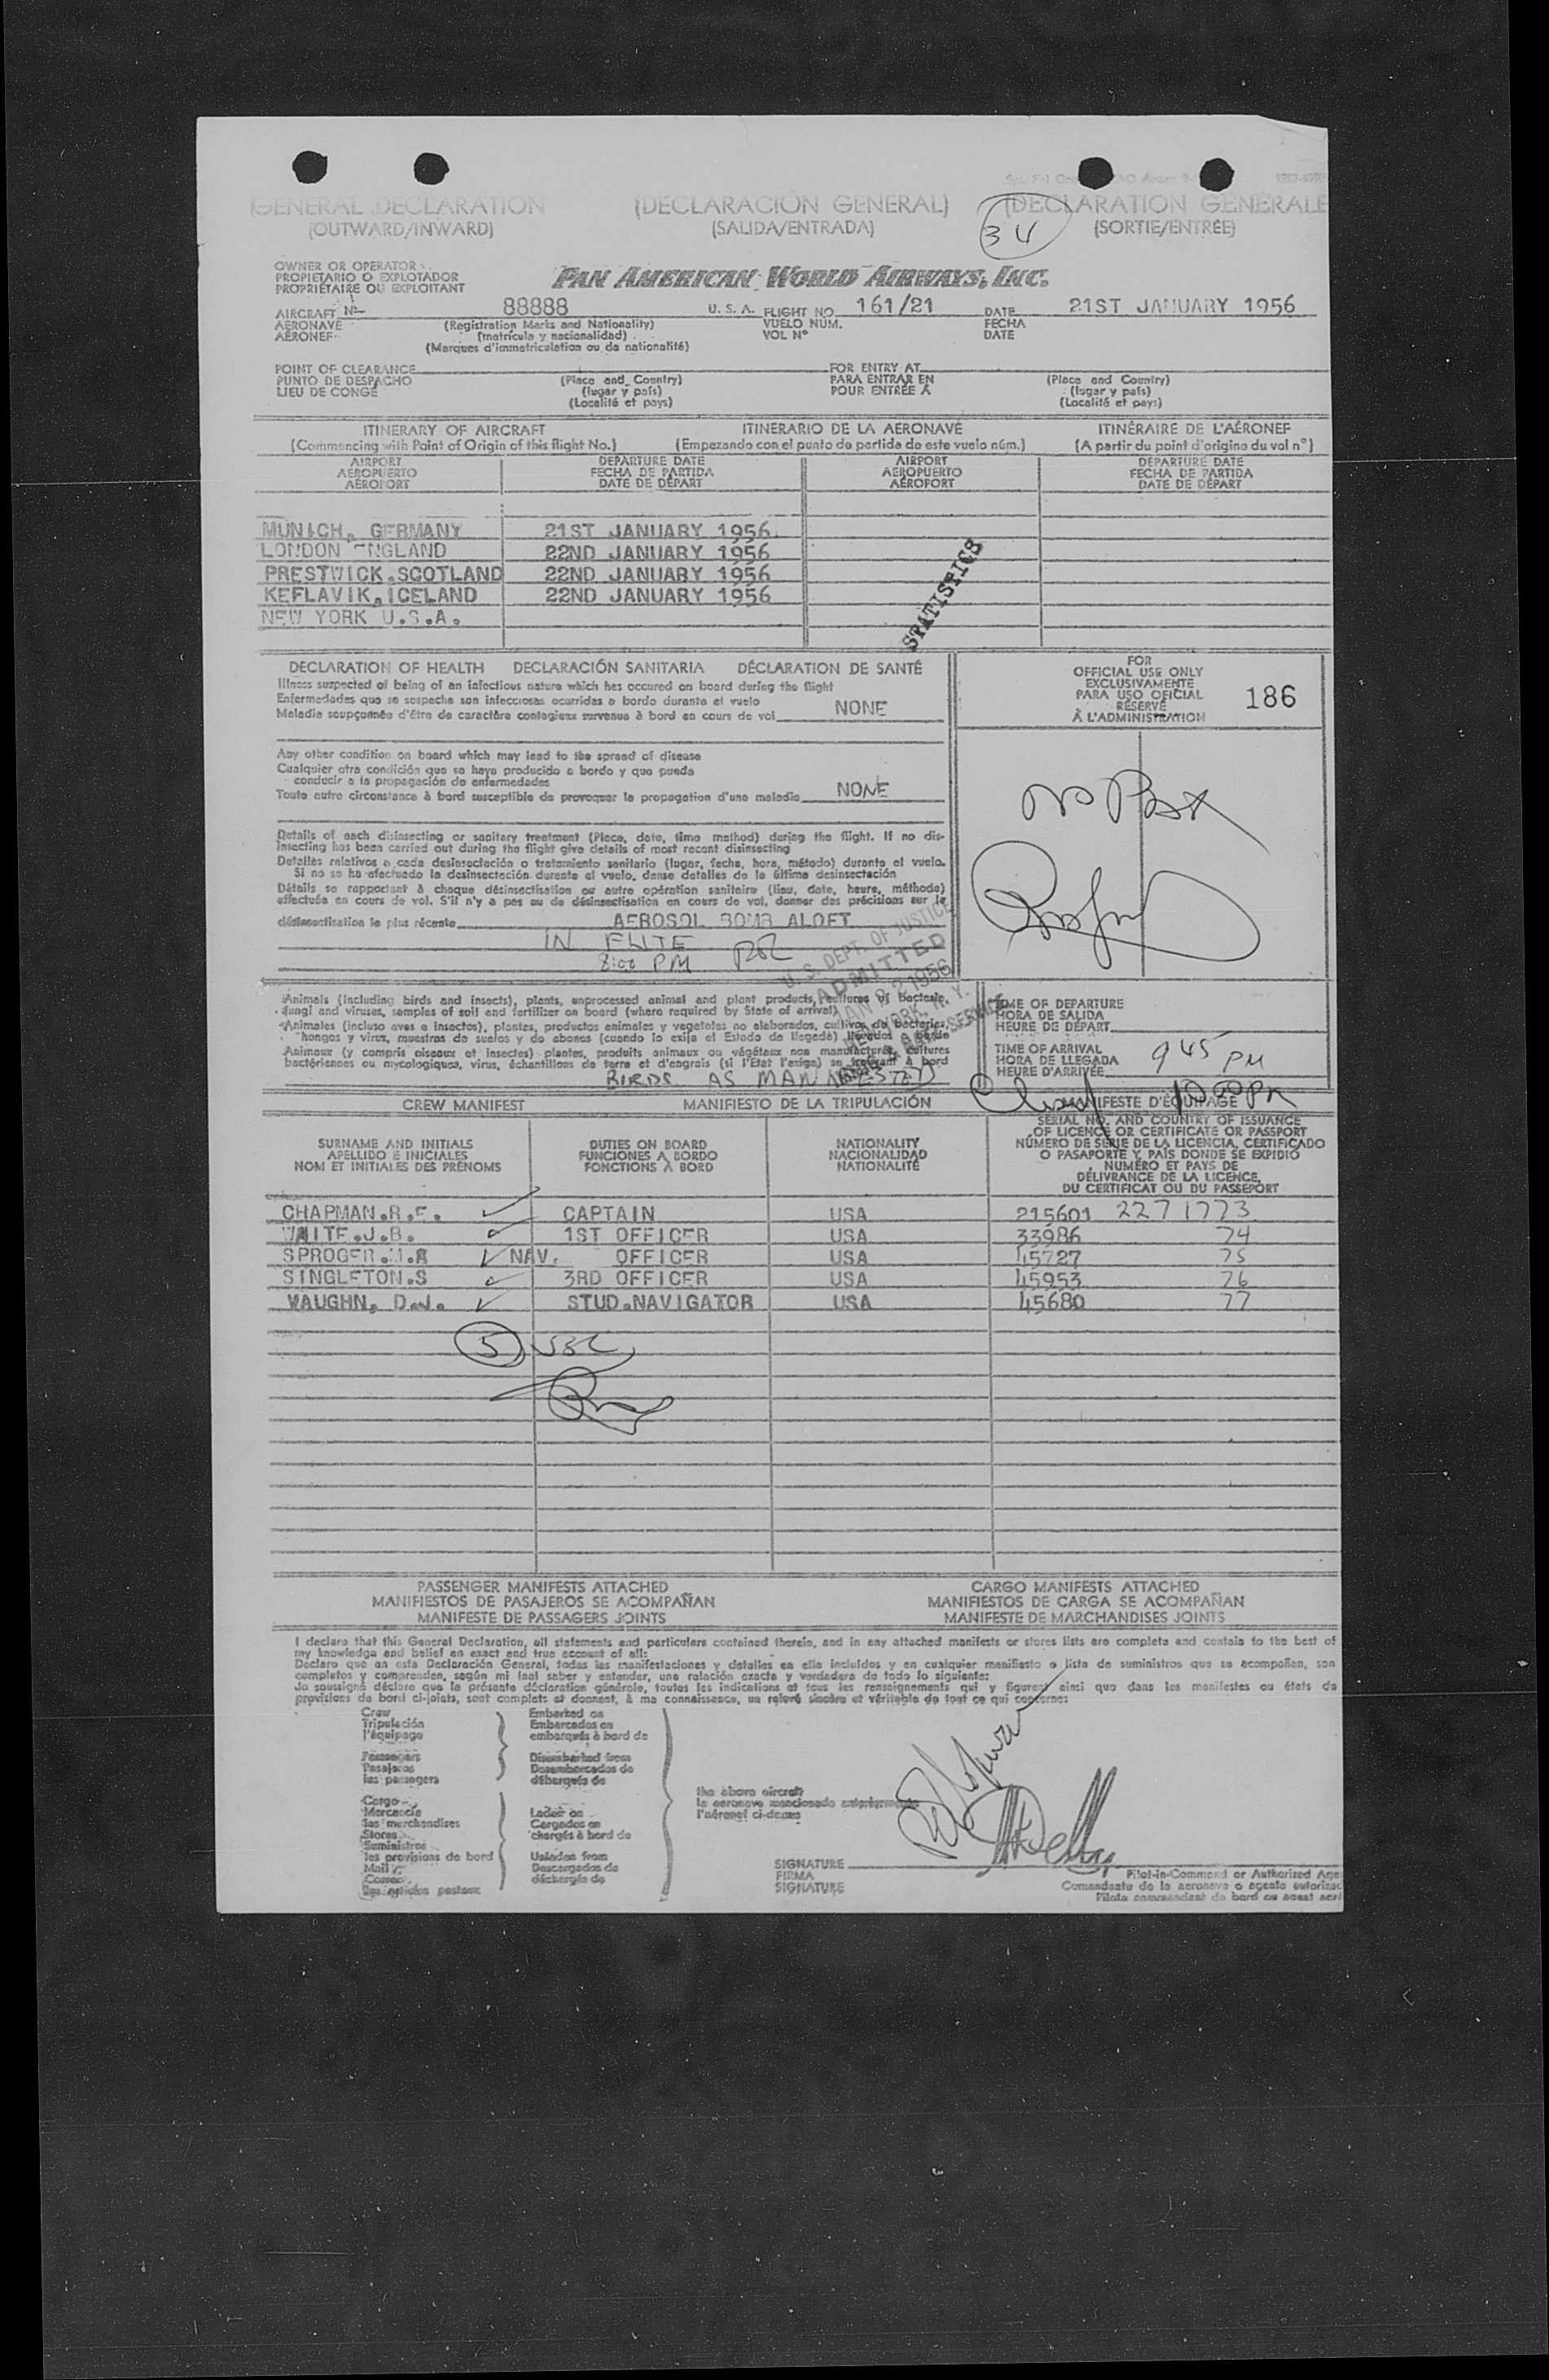 GENERAL DECLARATION (DECLARACIÓN GENERAL) (DECLARATION GÉNÉRALE
(OUTWARD/INWARD) (SALIDA/ENTRADA) 34 (SORTIE/ENTRÉE)
OWNER OR OPERATOR
PROPIETARIO O EXPLOTADOR
PROPRIÉTAIRE OU EXPLOITANT
PAN AMERICAN WORLD AIRWAYS, INC.
AIRCRAFT Nº 88888 U. S. A. FLIGHT NO. 161/21 DATE 21ST JANUARY 1956
AERONAVE (Registration Marks and Nationality) VUELO NÚM. FECHA
AÉRONEF (matrícula y nacionalidad) VOL Nº DATE
(Marques d'immatriculation ou de nationalité)
POINT OF CLEARANCE FOR ENTRY AT
PUNTO DE DESPACHO (Place and Country) PARA ENTRAR EN (Place and Country)
LIEU DE CONGÉ (lugar y país) POUR ENTRÉE À (lugar y país)
(Localité et pays) (Localité et pays)
ITINERARY OF AIRCRAFT ITINERARIO DE LA AERONAVE ITINÉRAIRE DE L'AÉRONEF
(Commencing with Point of Origin of this flight No.) (Empezando con el punto de partida de este vuelo núm.) (A partir du point d'origine du vol nº)
AIRPORT DEPARTURE DATE AIRPORT DEPARTURE DATE
AEROPUERTO FECHA DE PARTIDA AEROPUERTO FECHA DE PARTIDA
AÉROPORT DATE DE DÉPART AÉROPORT DATE DE DÉPART
MUNICH, GERMANY 21ST JANUARY 1956
LONDON ENGLAND 22ND JANUARY 1956
PRESTWICK.SCOTLAND 22ND JANUARY 1956
KEFLAVIK, ICELAND 22ND JANUARY 1956
NEW YORK U.S.A.
STATISTICS
DECLARATION OF HEALTH DECLARACIÓN SANITARIA DÉCLARATION DE SANTÉ
Illness suspected of being of an infectious nature which has occured on board during the flight
Enfermedades que se sospecha son infecciosas ocurridas a bordo durante el vuelo
Maladie soupçonnée d'être de caractère contagieux survenue à bord en cours de vol NONE
FOR
OFFICIAL USE ONLY
EXCLUSIVAMENTE
PARA USO OFICIAL
RÉSERVÉ
À L'ADMINISTRATION
186
Any other condition on board which may lead to the spread of disease
Cualquier otra condición que se haya producido a bordo y que pueda
conducir a la propagación de enfermedades
Toute autre circonstance à bord susceptible de provoquer la propagation d'une maladie NONE
Details of each disinsecting or sanitary treatment (Place, date, time method) during the flight. If no dis-
insecting has been carried out during the flight give details of most recent disinsecting
Detalles relativos a cada desinsectación o tratamiento sanitario (lugar, fecha, hora, método) durante el vuelo.
Si no se ha efectuado la desinsectación durante el vuelo, dense detalles de la última desinsectación
Détails se rapportant à chaque désinsectisation ou autre opération sanitaire (lieu, date, heure, méthode)
effectuée en cours de vol. S'il n'y a pas eu de désinsectisation en cours de vol, donner des précisions sur la
désinsectisation la plus récente AEROSOL BOMB ALOFT
IN FLITE
8:00 PM
U. S. DEPT. OF JUSTICE
ADMITTED
JAN 22 1956
NEW YORK, N. Y.
Animals (including birds and insects), plants, unprocessed animal and plant products, cultures of bacteria,
fungi and viruses, samples of soil and fertilizer on board (where required by State of arrival)
Animales (incluso aves e insectos), plantas, productos animales y vegetales no elaborados, cultivos de bacterias,
hongos y virus, muestras de suelos y de abonos (cuando lo exija el Estado de llegada) llevados a bordo
Animaux (y compris oiseaux et insectes) plantes, produits animaux ou végétaux non manufacturés, cultures
bactériennes ou mycologiques, virus, échantillons de terre et d'engrais (si l'État l'exige) se trouvant à bord
BIRDS AS MANIFESTED
TIME OF DEPARTURE
HORA DE SALIDA
HEURE DE DÉPART
TIME OF ARRIVAL
HORA DE LLEGADA 945 PM
HEURE D'ARRIVÉE
CREW MANIFEST MANIFIESTO DE LA TRIPULACIÓN MANIFESTE D'ÉQUIPAGE
SURNAME AND INITIALS
APELLIDO E INICIALES
NOM ET INITIALES DES PRÉNOMS
DUTIES ON BOARD
FUNCIONES A BORDO
FONCTIONS À BORD
NATIONALITY
NACIONALIDAD
NATIONALITÉ
SERIAL NO. AND COUNTRY OF ISSUANCE
OF LICENCE OR CERTIFICATE OR PASSPORT
NÚMERO DE SERIE DE LA LICENCIA, CERTIFICADO
O PASAPORTE Y PAÍS DONDE SE EXPIDIÓ
NUMÉRO ET PAYS DE
DÉLIVRANCE DE LA LICENCE,
DU CERTIFICAT OU DU PASSEPORT
CHAPMAN.R.E. CAPTAIN USA 215601 2271773
WAITE.J.B. 1ST OFFICER USA 33986 74
SPROGER.M.R NAV. OFFICER USA 45727 75
SINGLETON.S 3RD OFFICER USA 45953 76
VAUGHN, D.J. STUD.NAVIGATOR USA 45680 77
5 USC
PASSENGER MANIFESTS ATTACHED CARGO MANIFESTS ATTACHED
MANIFIESTOS DE PASAJEROS SE ACOMPAÑAN MANIFIESTOS DE CARGA SE ACOMPAÑAN
MANIFESTE DE PASSAGERS JOINTS MANIFESTE DE MARCHANDISES JOINTS
I declare that this General Declaration, all statements and particulars contained therein, and in any attached manifests or stores lists are complete and contain to the best of
my knowledge and belief an exact and true account of all:
Declaro que en esta Declaración General, todas las manifestaciones y detalles en ella incluídos y en cualquier manifiesto o lista de suministros que se acompañen, son
completos y comprenden, según mi leal saber y entender, una relación exacta y verdadera de todo lo siguiente:
Je soussigné déclare que la présente déclaration générale, toutes les indications et tous les renseignements qui y figurent ainsi que dans les manifestes ou états de
provisions de bord ci-joints, sont complets et donnent, à ma connaissance, un relevé sincère et véritable de tout ce qui concerne:
Crew
Tripulación
l'équipage
Embarked on
Embarcados en
embarqués à bord de
Passengers
Pasajeros
les passagers
Disembarked from
Desembarcados de
débarqués de
Cargo
Mercancía
les merchandises
Stores
Suministros
les provisions de bord
Mail
Correo
les articles postaux
Laden on
Cargados en
chargés à bord de
Unladen from
Descargados de
déchargés de
the above aircraft
la aeronave mencionada anteriormente
l'aéronef ci-dessus
SIGNATURE
FIRMA
SIGNATURE
Pilot-in-Command or Authorized Age
Comandante de la aeronave o agente autoriza
Pilote commandant de bord ou agent